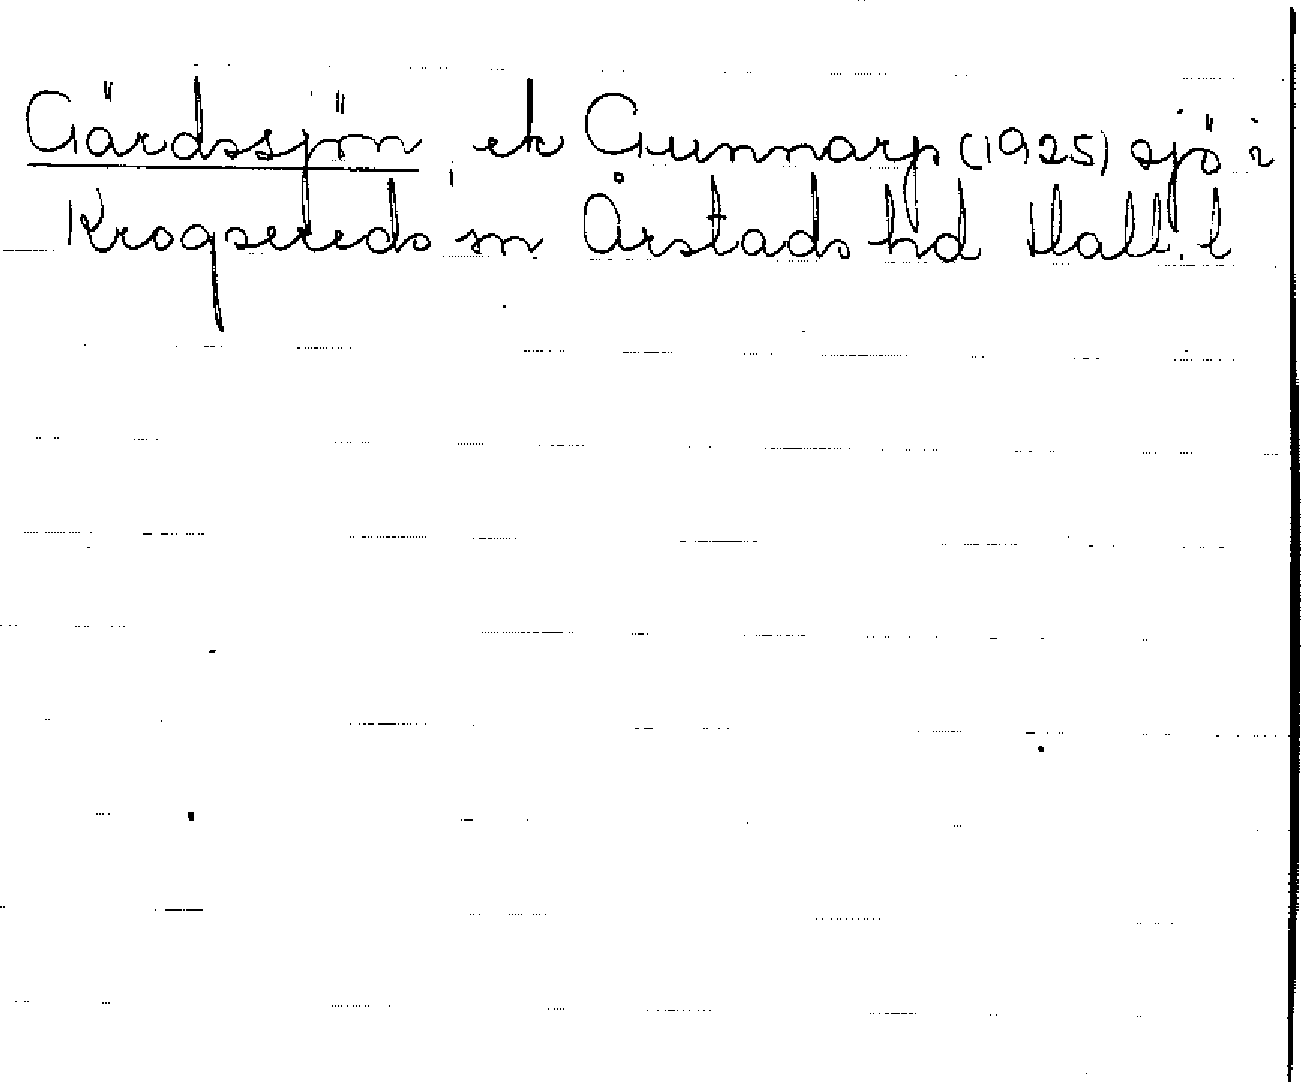 Gärdssjön, ek Gunnarp (1925) sjö i
Krogsereds sn Årstads hd Hall. l